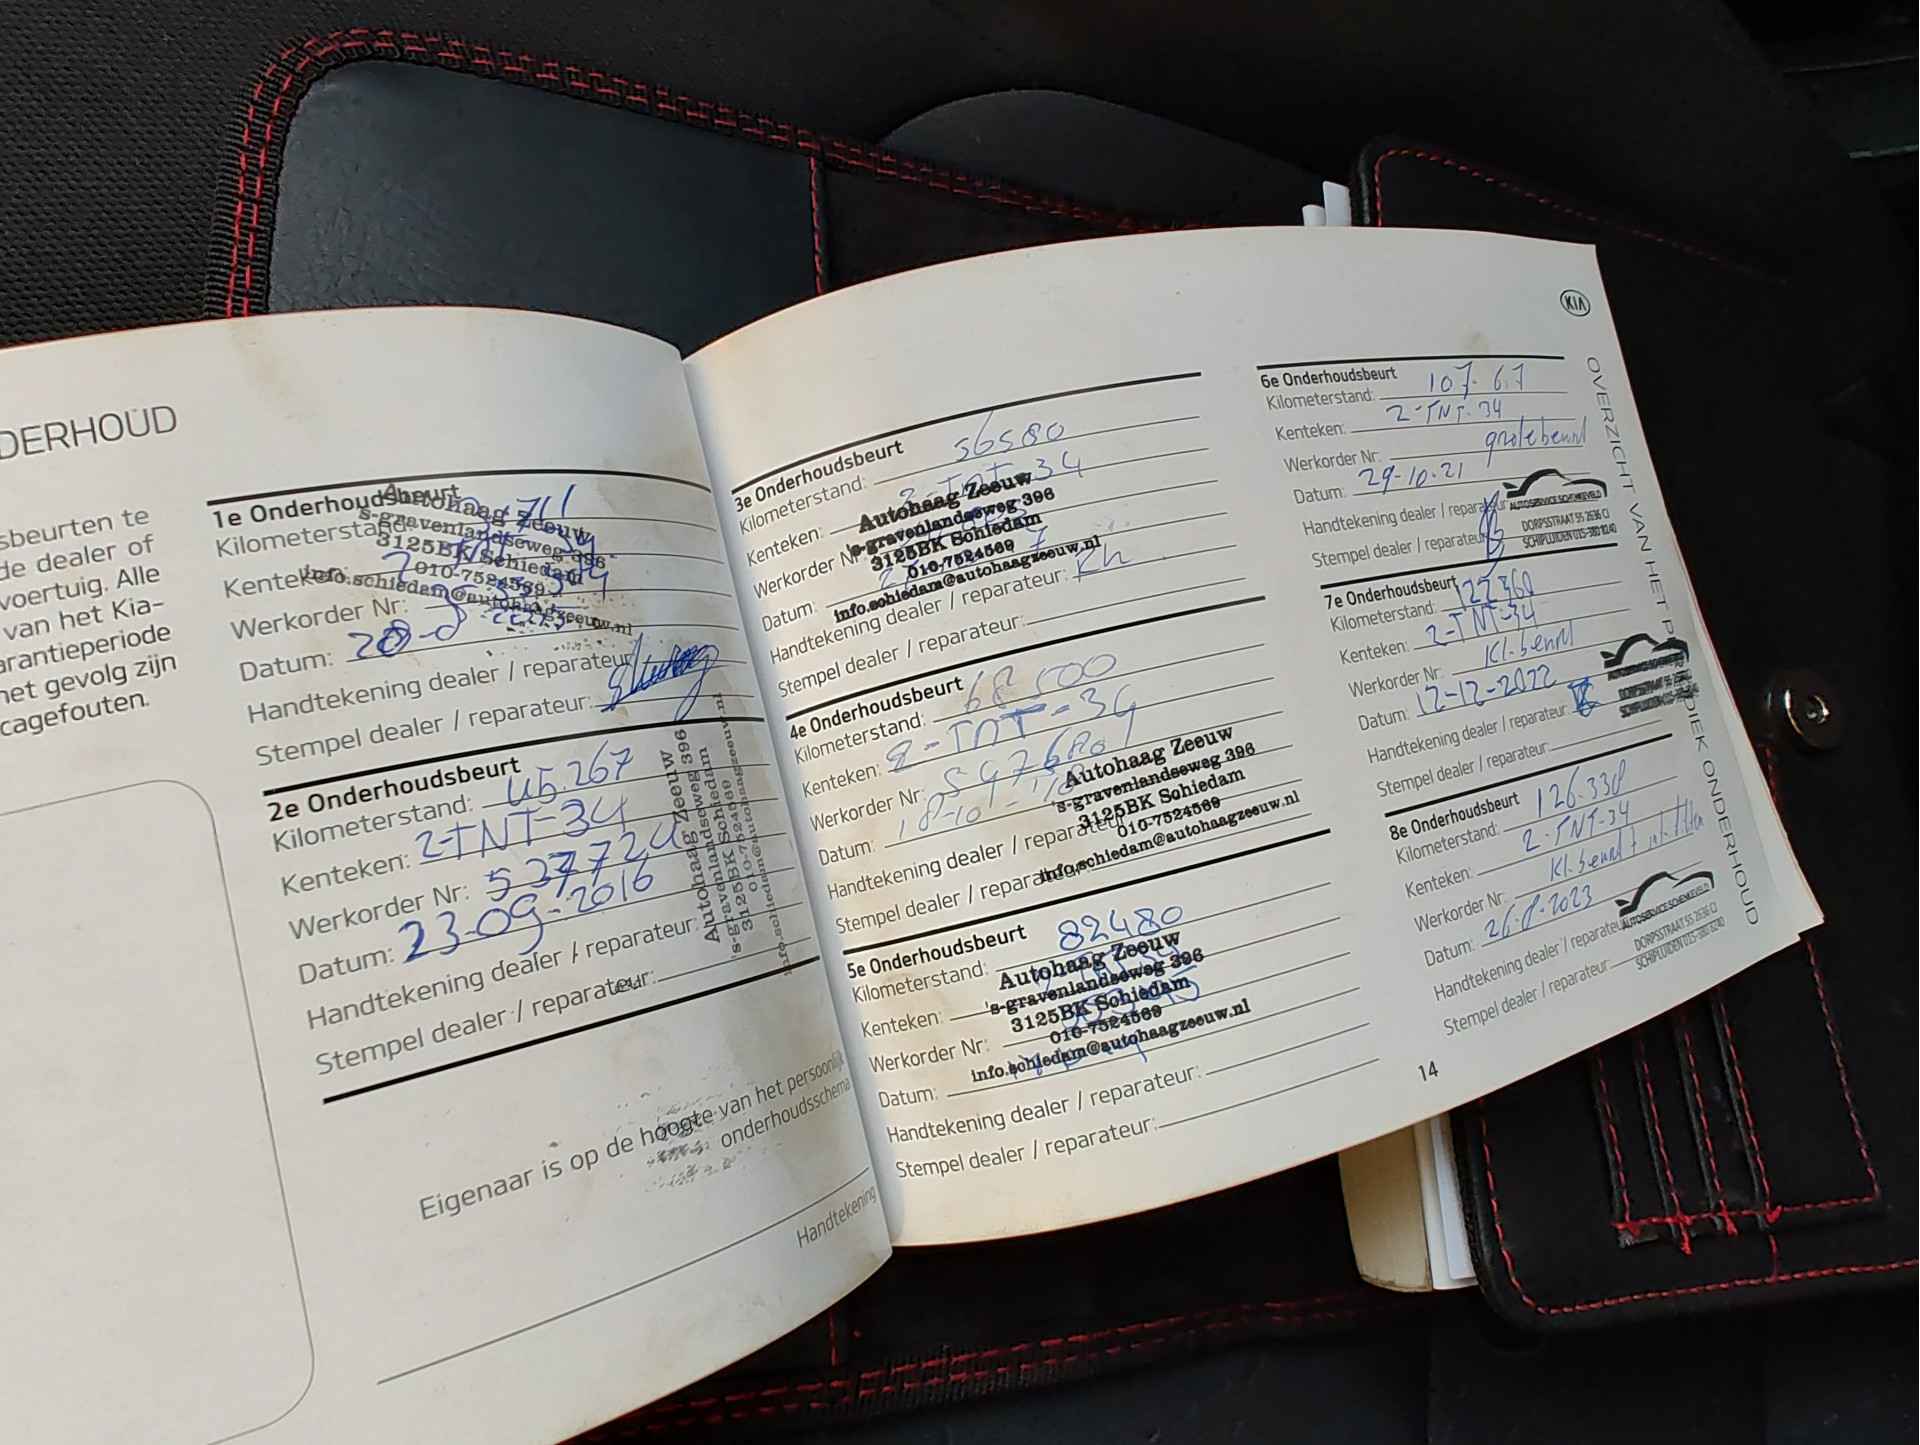 DERHOUD
sbeurten te
de dealer of
voertuig. Alle
van het Kia-
arantieperiode
net gevolg zijn
cagefouten.
1e Onderhoudsbeurt
Kilometerstand:
Kenteken:
Werkorder Nr:
Datum:
Handtekening dealer / reparateur
Stempel dealer / reparateur:
Autohaag Zeeuw
's-gravenlandseweg 396
3125BK Schiedam
010-7524569
info.schiedam@autohaagzeeuw.nl
2e Onderhoudsbeurt
Kilometerstand: 45.267
Kenteken: 2-TNT-34
Werkorder Nr:
Datum: 23-09-2016
Handtekening dealer / reparateur:
Stempel dealer / reparateur:
Autohaag Zeeuw
's-gravenlandseweg 396
3125BK Schiedam
010-7524569
info.schiedam@autohaagzeeuw.nl
Eigenaar is op de hoogte van het persoonlijk
onderhoudsschema
Handtekening
3e Onderhoudsbeurt
Kilometerstand: 56580
Kenteken: 2-TNT-34
Werkorder Nr
Datum:
Handtekening dealer / reparateur:
Stempel dealer / reparateur:
Autohaag Zeeuw
's-gravenlandseweg 396
3125BK Schiedam
010-7524569
info.schiedam@autohaagzeeuw.nl
4e Onderhoudsbeurt
Kilometerstand: 68500
Kenteken: 2-TNT-34
Werkorder Nr:
Datum: 18-10-
Handtekening dealer / reparateur
Stempel dealer / reparateur
Autohaag Zeeuw
's-gravenlandseweg 396
3125BK Schiedam
010-7524569
info.schiedam@autohaagzeeuw.nl
5e Onderhoudsbeurt
Kilometerstand: 82480
Kenteken:
Werkorder Nr:
Datum:
Handtekening dealer / reparateur:
Stempel dealer / reparateur:
Autohaag Zeeuw
's-gravenlandseweg 396
3125BK Schiedam
010-7524569
info.schiedam@autohaagzeeuw.nl
KIA
6e Onderhoudsbeurt
Kilometerstand: 107.67
Kenteken: 2-TNT-34
Werkorder Nr: grote beurt
Datum: 29-10-21
Handtekening dealer / reparateur
Stempel dealer / reparateur
AUTOSERVICE SCHENKEVELD
DORPSSTRAAT 55 2636 CJ
SCHIPLUIDEN 015-380 8240
7e Onderhoudsbeurt
Kilometerstand: 122360
Kenteken: 2-TNT-34
Werkorder Nr: Kl. beurt
Datum: 12-12-2022
Handtekening dealer / reparateur:
Stempel dealer / reparateur:
8e Onderhoudsbeurt
Kilometerstand: 126.338
Kenteken: 2-TNT-34
Werkorder Nr: Kl. beurt +
Datum: 26-8-2023
Handtekening dealer / reparateur
Stempel dealer / reparateur:
AUTOSERVICE SCHENKEVELD
DORPSSTRAAT 55 2636 CJ
SCHIPLUIDEN 015-380 8240
OVERZICHT VAN HET P DIEK ONDERHOUD
14